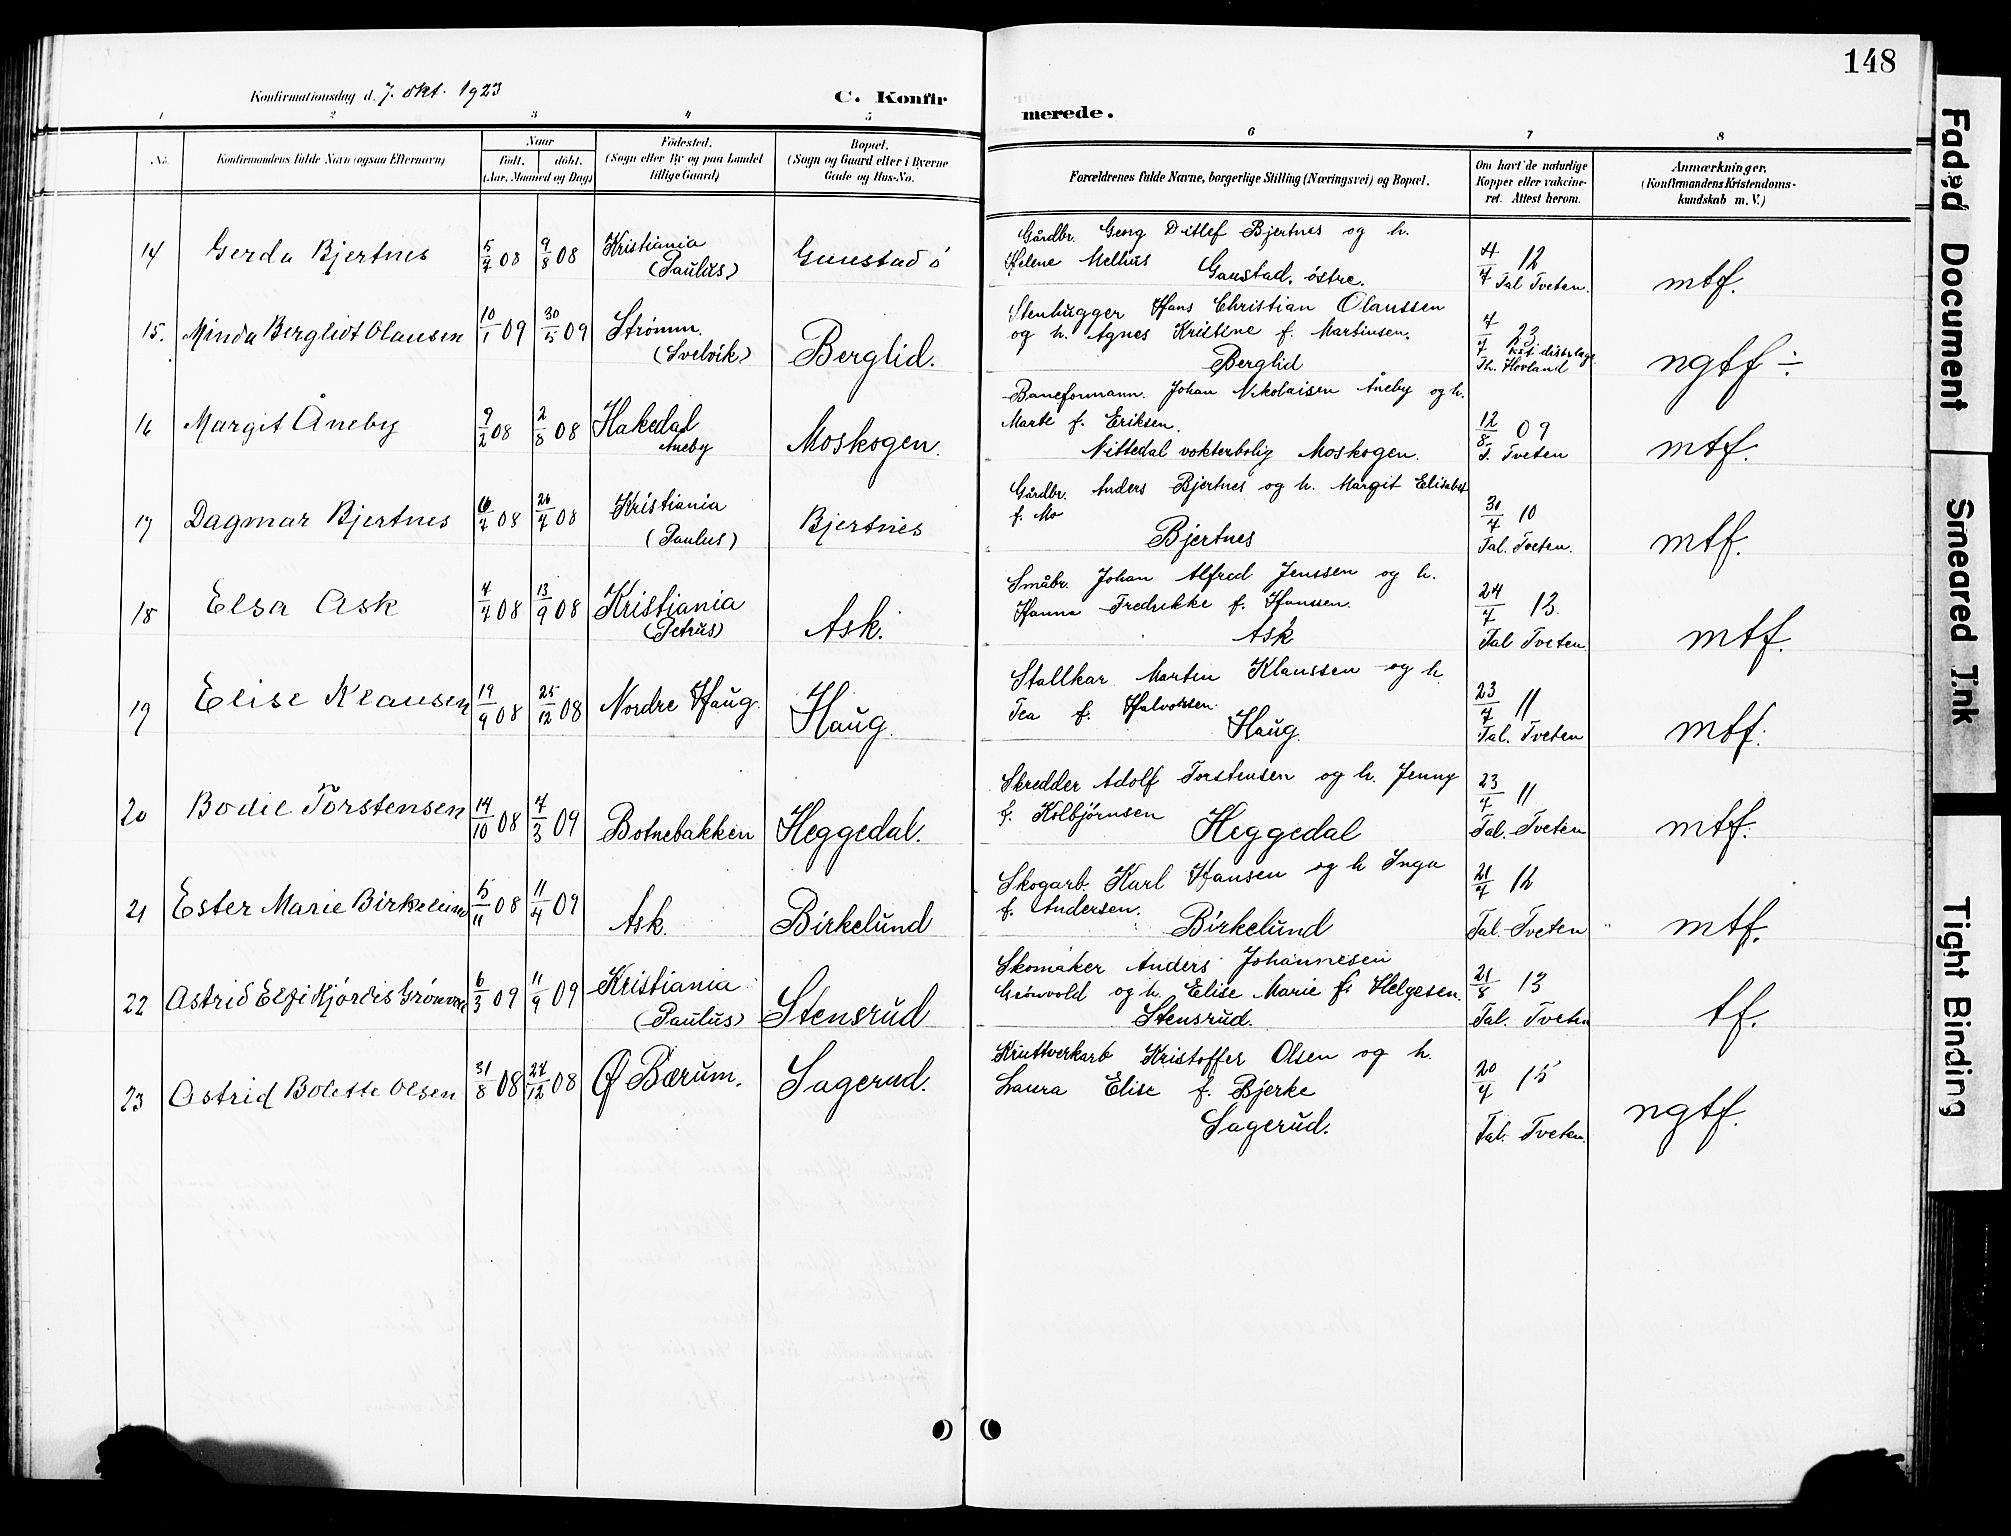 148
Konfirmationsdag d. 7. okt. 1923
C. Konfirmerede.
1 2 3 4 5 6 7 8
No. Konfirmandens fulde Navn (ogsaa Efternavn) Naar født. døbt. (Aar, Maaned og Dag) Fødested. (Sogn eller By og paa Landet tillige Gaard) Bopæl. (Sogn og Gaard eller i Byerne Gade og Hus-No. Forældrenes fulde Navne, borgerlige Stilling (Næringsvei) og Bopæl. Om havt de naturlige Kopper eller vakcineret. Attest herom. Anmærkninger. (Konfirmandens Kristendomskundskab m. V.)
14 Gerda Bjertnes 5/7 08 9/8 08 Kristiania (Paulus) Gaustad ø Gårdbr. Georg Ditlef Bjertnes og h. Helene Melhus Gaustad, østre. 4/7 12 Tal Tveten. mtf.
15. Minda Bergliot Olausen 10/1 09 30/5 09 Strømm. (Svelvik) Berglid. Stenhugger Hans Christian Olaussen og h. Agnes Kristine f. Martinsen. Berglid 4/7 23 Th. Hovland ngtf ÷
16 Margit Åneby 9/2 08 2/8 08 Hakedal Aneby Moskogen. Baneformann. Johan Nikolaisen Åneby og h. Marte f. Eriksen. Nittedal vokterbolig Moskogen. 12/8 09 T. Tveten mtf.
17 Dagmar Bjertnes 6/7 08 26/7 08 Kristiania (Paulus) Bjertnes Gårdbr. Anders Bjertnes og h. Margit Elisabet f. Mo Bjertnes 30/7 10 Tal. Tveten. mtf.
18 Elsa Ask 4/7 08 13/9 08 Kristiania (Petrus) Ask. Småbr. Johan Alfred Jenssen og h. Hanna Fredrikke f. Hanssen. Ask 24/7 13. Tal Tveten mtf.
19 Elise Klausen 19/9 08 25/12 08 Nordre Haug. Haug. Stallkar Morten Klaussen og h. Tea f. Halvorsen. Haug. 23/7 11 Tal. Tveten mtf.
20 Bodil Torstensen 14/10 08 7/3 09 Botnebakken Heggedal. Skredder Adolf Torstensen og h. Jenny f. Kolbjørnsen Heggedal 23/7 11 Tal. Tveten mtf.
21 Ester Marie Birkelund 5/11 08 11/4 09 Ask. Birkelund Skogarb. Karl Hansen og h Inga f. Andersen. Birkelund 21/7 12 Tal. Tveten mtf.
22 Astrid Elfi Hjørdis Grønvold 6/3 09 11/9 09 Kristiania (Paulus) Stensrud Skomaker Anders Johannesen Grønvold og h. Elise Marie f. Helgesen. Stensrud. 21/8 13 Tal. Tveten tf.
23 Astrid Bolette Olsen 31/8 08 27/12 08 Ø Bærum. Sagerud. Kruttverkarb Kristoffer Olsen og h. Laura Elise f. Bjerke Sagerud. 20/7 15 Tal. Tveten. ngtf.
Faded Document
Smeared Ink
Tight Binding